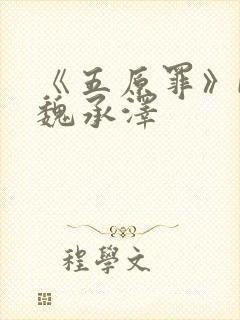 《五原罪》
魏承澤
程學文